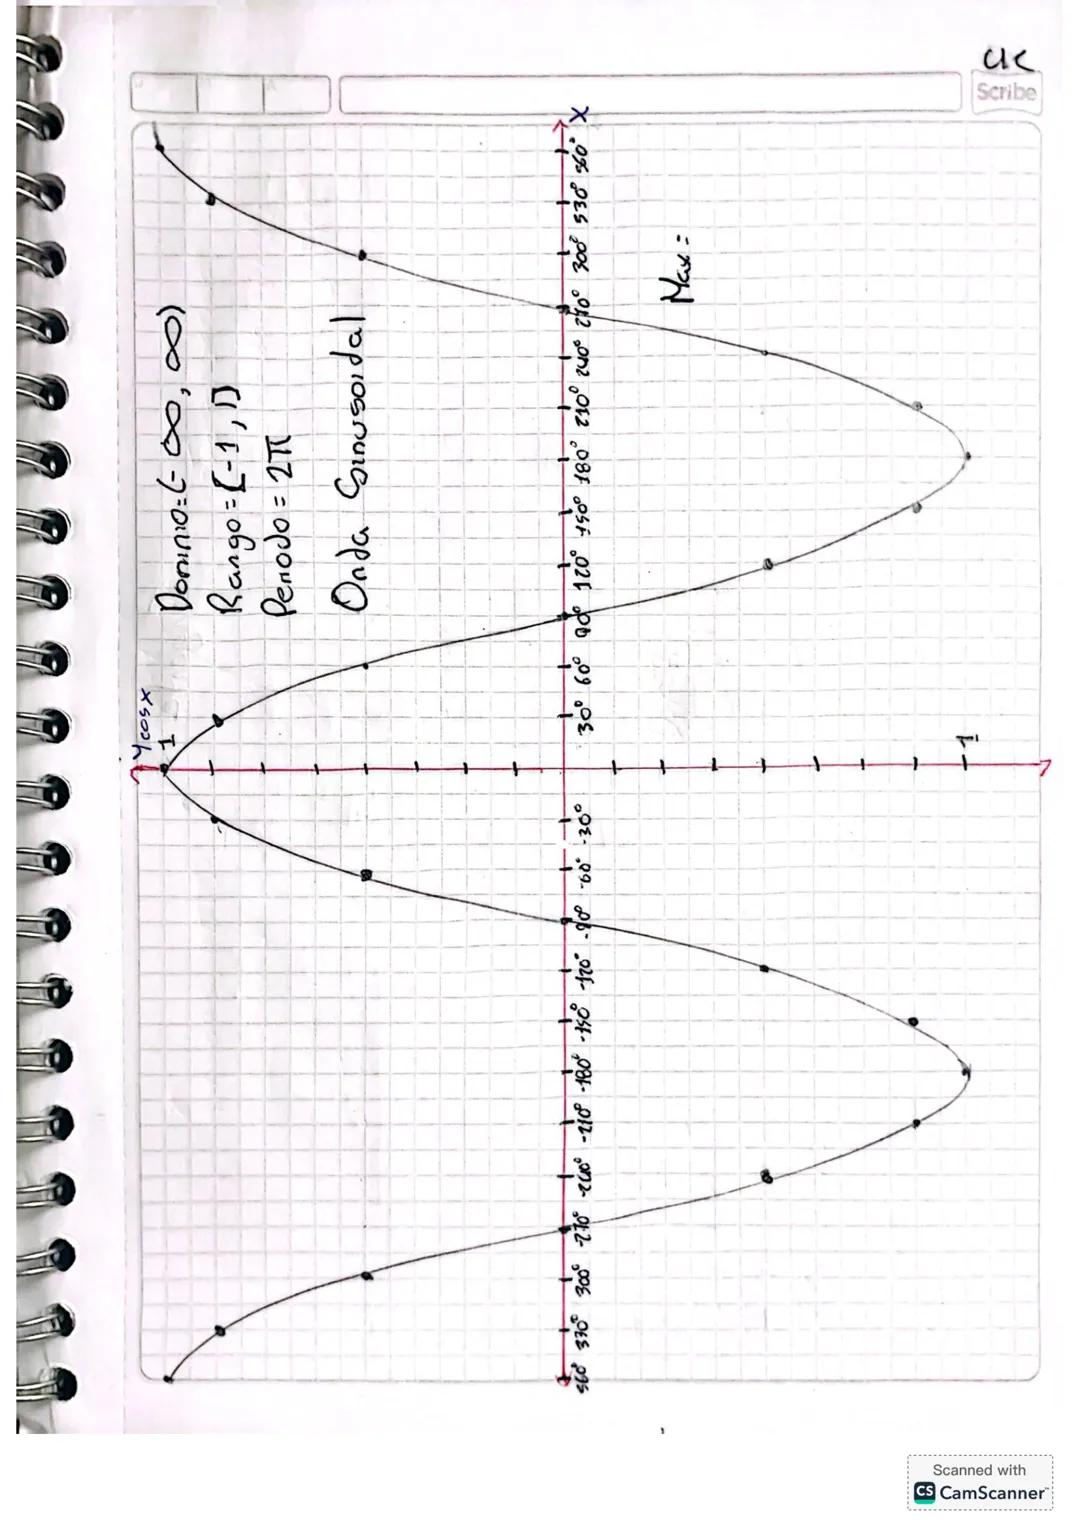 uc
Scribe
Y cos x
1
Dominio = (- ∞, ∞)
Rango = [-1, 1]
Periodo = 2π
Onda Sinusoidal
360° 330° 300° -270° -240° -210° -180° -150° -120° -90° -60° -30° 30° 60° 90° 120° 150° 180° 210° 240° 270° 300° 330° 360° X
Max =
1
Scanned with
CS CamScanner